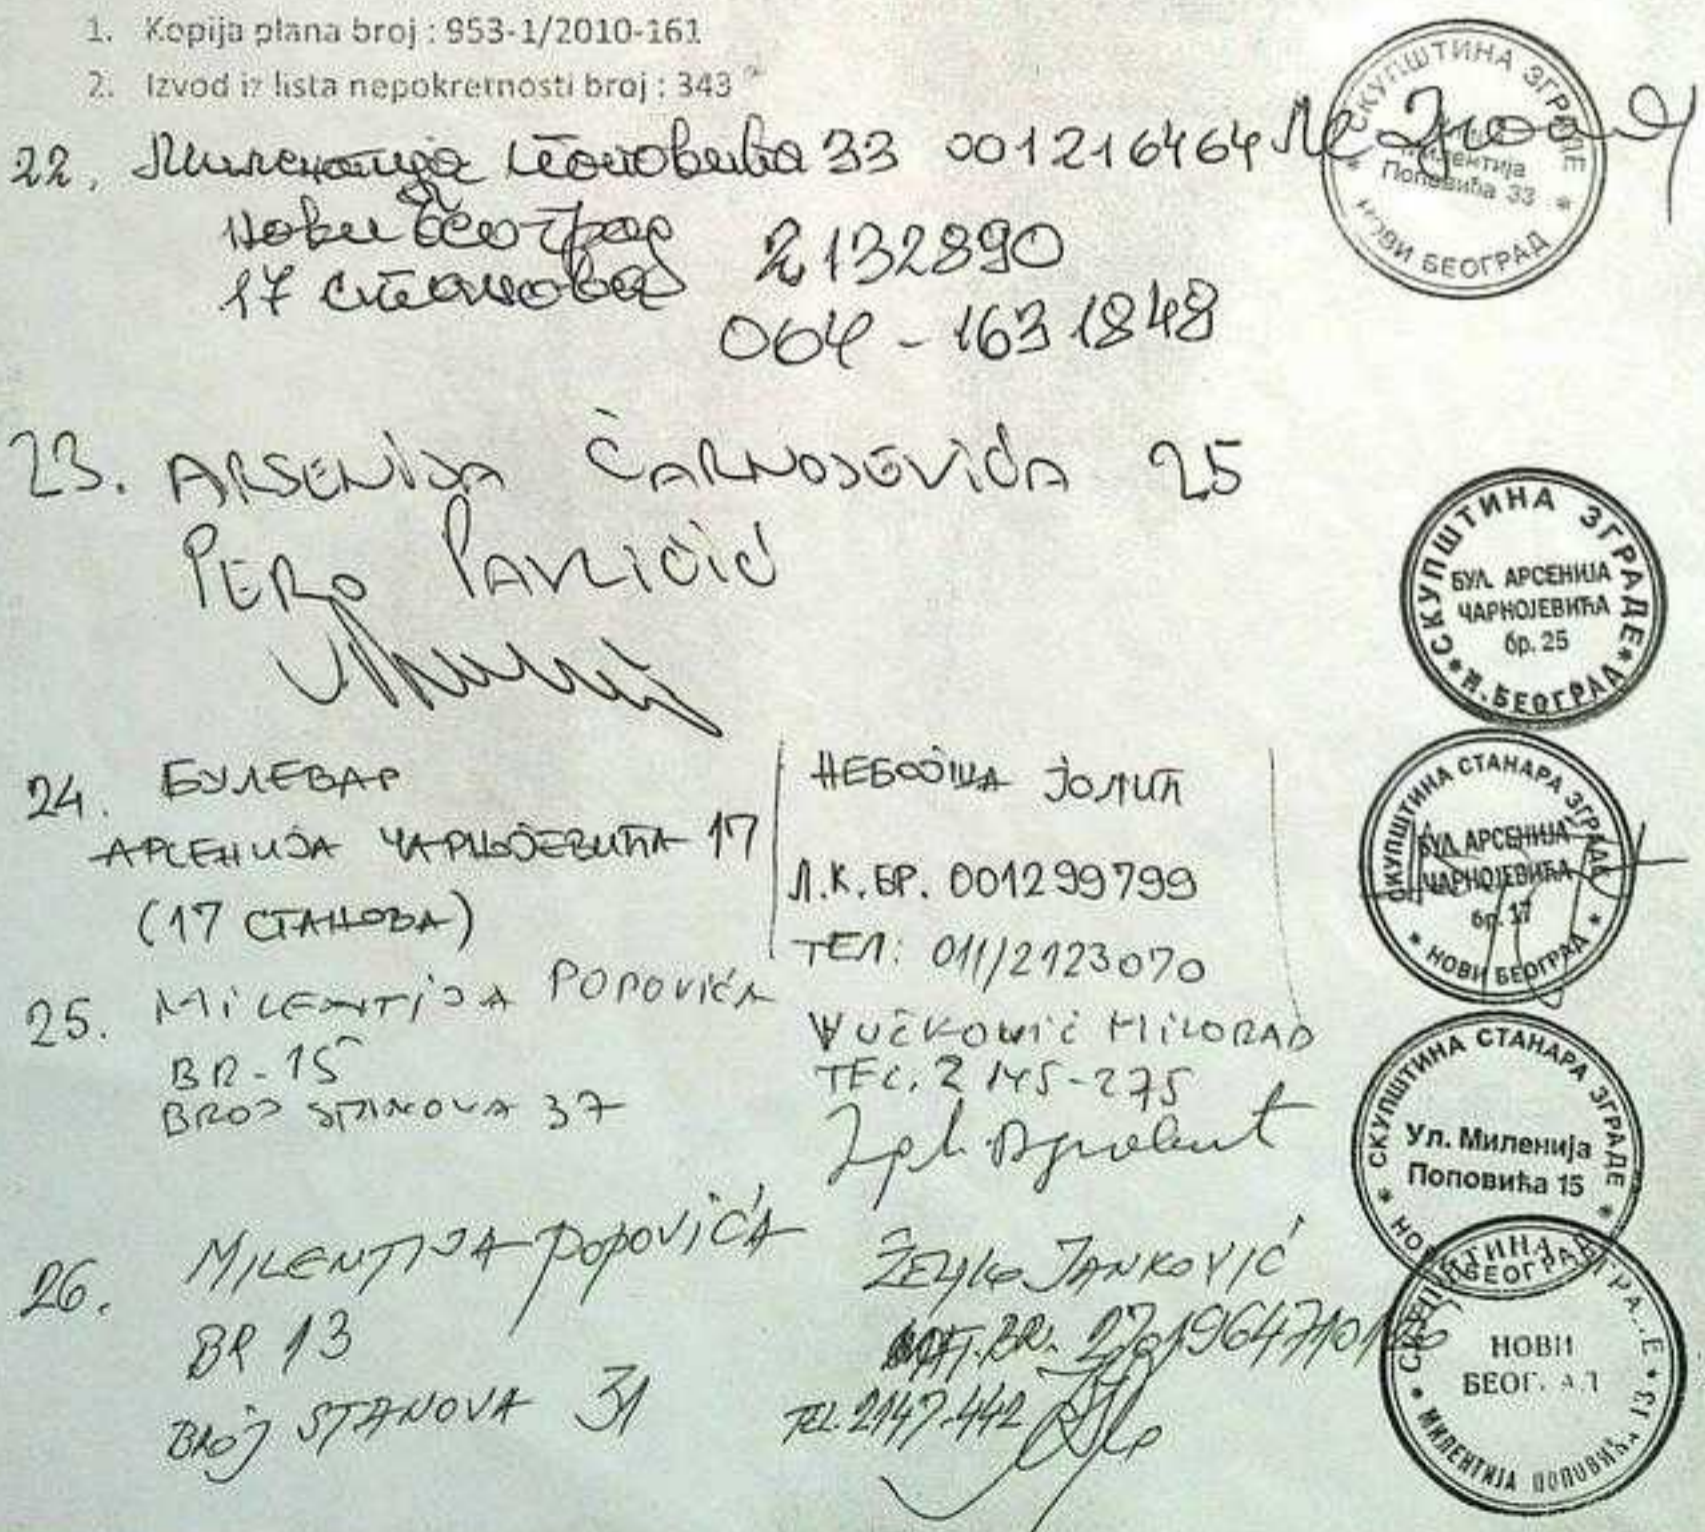 1. Kopija plana broj : 953-1/2010-161
2. Izvod iz lista nepokretnosti broj : 343
22. Милентија Поповића 33 001216464
Нови Београд
17 станова 2132890
064-1631848
СКУПШТИНА ЗГРАДЕ
Милентија
Поповића 33
* НОВИ БЕОГРАД *
23. ARSENIJA ČARNOJEVIĆA 25
PERO PAVLIČIĆ
СКУПШТИНА ЗГРАДЕ
БУЛ. АРСЕНИЈА
ЧАРНОЈЕВИЋА
бр. 25
* Н. БЕОГРАД *
24. БУЛЕВАР
АРСЕНИЈА ЧАРНОЈЕВИЋА 17
(17 СТАНОВА)
НЕБОЈША
Л.К. БР. 001299799
ТЕЛ: 011/2123070
СКУПШТИНА СТАНАРА ЗГРАДЕ
БУЛ. АРСЕНИЈА
ЧАРНОЈЕВИЋА
бр. 17
* НОВИ БЕОГРАД *
25. MILENTIJA POPOVIĆA
BR-15
BROJ STANOVA 37
VUČKOVIĆ MILORAD
TEL. 2145-275
СКУПШТИНА СТАНАРА ЗГРАДЕ
Ул. Миленија
Поповића 15
* НОВИ БЕОГРАД *
26. MILENTIJA POPOVIĆA
BR 13
BROJ STANOVA 31
ŽELJKO JANKOVIĆ
TEL. 2147-442
НОВИ
МИЛЕНТИЈА ПОПОВИЋА 13